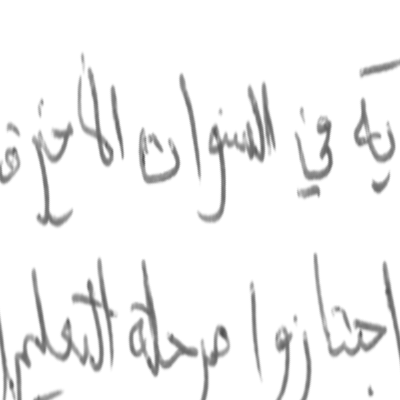 في السنوات الأخيرة
اجتازوا مرحلة التعليم